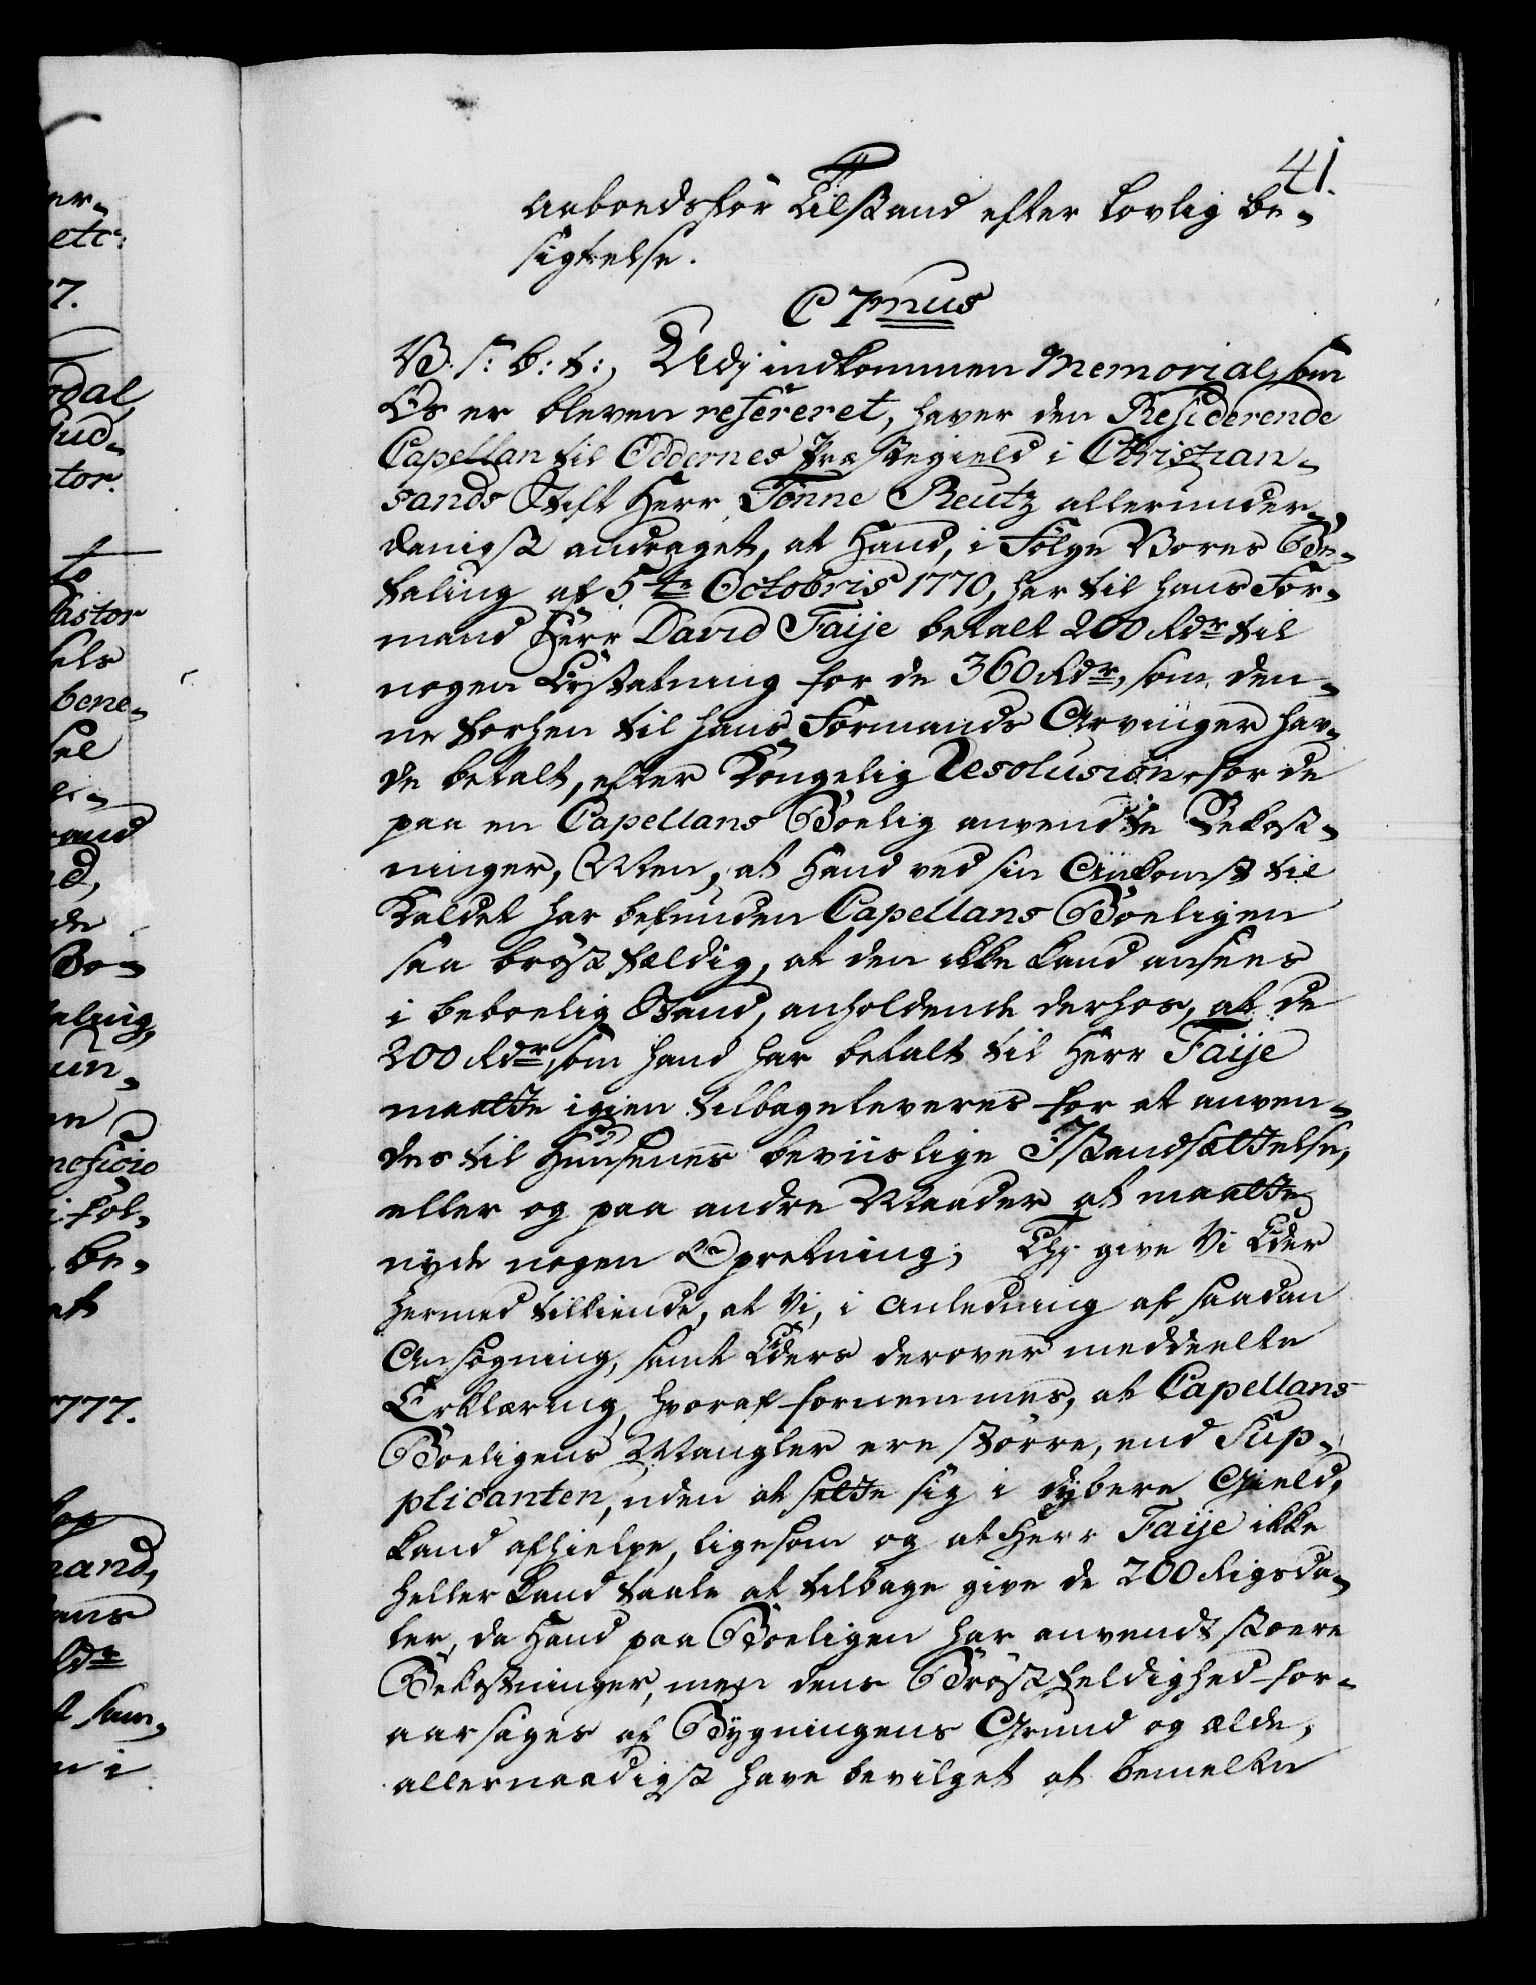 41.
aaboedsfør Tilstand efter lovlig be-
sigtelse.
C 7mus
V. s: b: t:, Udj indkommen Memorial, som
Os er bleven refereret, haver den Residerende
Capellan til Oddernes Præstegield i Christian-
sands Stift Herr Tønne Reutz allerunder-
danigst andraget, at Hand, i Følge Vores Be-
faling af 5te Octobris 1770, har til hans For-
mand Herr David Faije betalt 200 Rdr til
nogen Erstatning for de 360 Rdr, som den-
ne forhen til hans Formands Arvinger hav-
de betalt, efter Kongelig Resolusion, for de
paa en Capellans Boelig anvendte Bekost-
ninger, Men, at Hand ved sin Ankomst til
Kaldet har befunden Capellans Boeligen
saa brøstfældig, at den ikke kand ansees
i beboelig Stand, anholdende derhos, at de
200 Rdr, som hand har betalt til Herr Faije
maatte igien tilbageleveres for at anven-
des til Huusenes beviislige Istandsættelse,
eller og paa andre Maader at maatte
nyde nogen Opretning; Thj give Vi Eder
hermed tilkiende, at Vi, i Anledning af saadan
Ansøgning, samt Eders derover meddeelte
Erklæring, hvoraf fornemmes, at Capellans
Boeligens Mangler ere større, end Sup-
plicanten, uden at sette sig i dybere Gield,
kand afhielpe, ligesom og at Herr Faije ikke
heller kand taale at tilbage give de 200 Rigsda-
ler, da Hand paa Boeligen har anvendt stoere
Bekostninger, men dens Brøstfeldighed for-
aarsages af Bygningens Grund og ælde,
allernaadigst have bevilget at bemelte